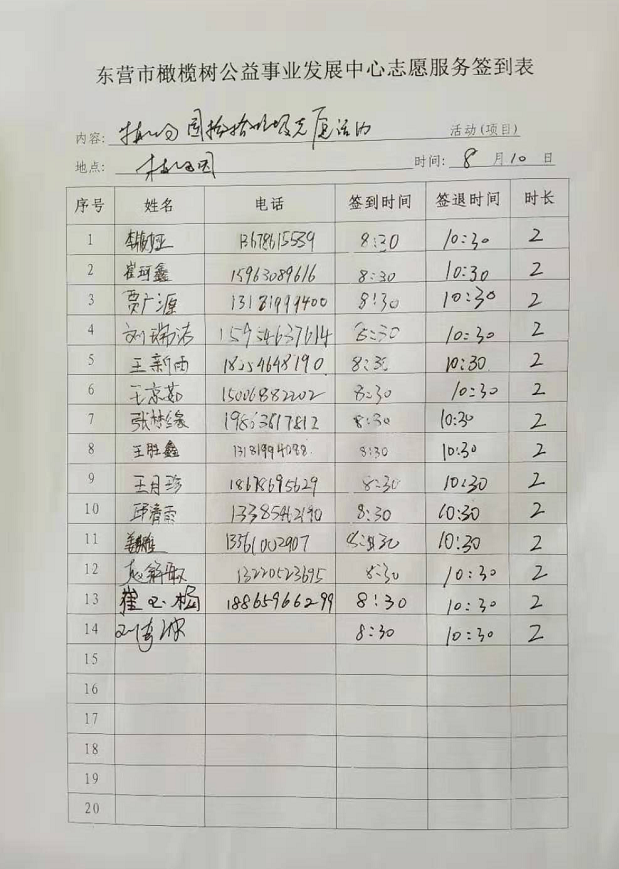 东营市橄榄树公益事业发展中心志愿服务签到表
内容: 活动(项目)
地点: 时间: 8 月 10 日
序号 姓名 电话 签到时间 签退时间 时长
1 13678615539 8:30 10:30 2
2 崔珂鑫 15963089616 8:30 10:30 2
3 贾广源 13181999400 8:30 10:30 2
4 刘瑞洁 15954637614 8:30 10:30 2
5 王新雨 18254648190 8:30 10:30 2
6 王京茹 15006882202 8:30 10:30 2
7 8:30 10:30 2
8 王胜鑫 8:30 10:30 2
9 王月珍 18678695629 8:30 10:30 2
10 8:30 10:30 2
11 13361002907 8:30 10:30 2
12 13220523695 8:30 10:30 2
13 18865966299 8:30 10:30 2
14 8:30 10:30 2
15
16
17
18
19
20